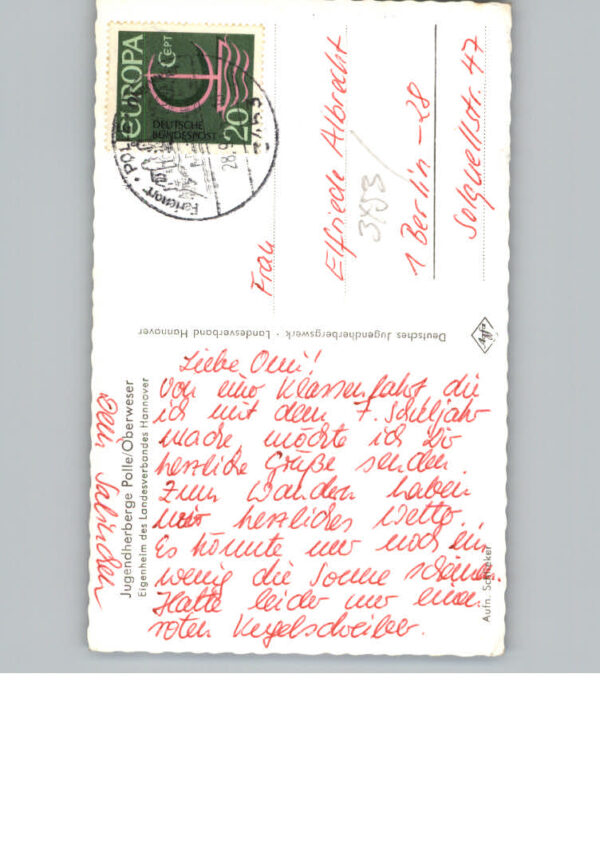 Liebe Omi!
Von einer Klassenfahrt die
ich mit dem 7. Schuljahr
mache, möchte ich Dir
herzliche Grüße senden.
Zum Wandern haben
wir herrliches Wetter.
Es könnte nur noch ein
wenig die Sonne scheinen.
Hatte leider nur einen
roten Kugelschreiber.
Dein
Jugendherberge Polle/Oberweser
Eigenheim des Landesverbandes Hannover
Deutsches Jugendherbergswerk · Landesverband Hannover
Agfa
Aufn.
Frau
Elfriede Albrecht
1 Berlin - 28
Solquellstr. 47
EUROPA
CEPT
DEUTSCHE
BUNDESPOST
20
28.9
Ferienort